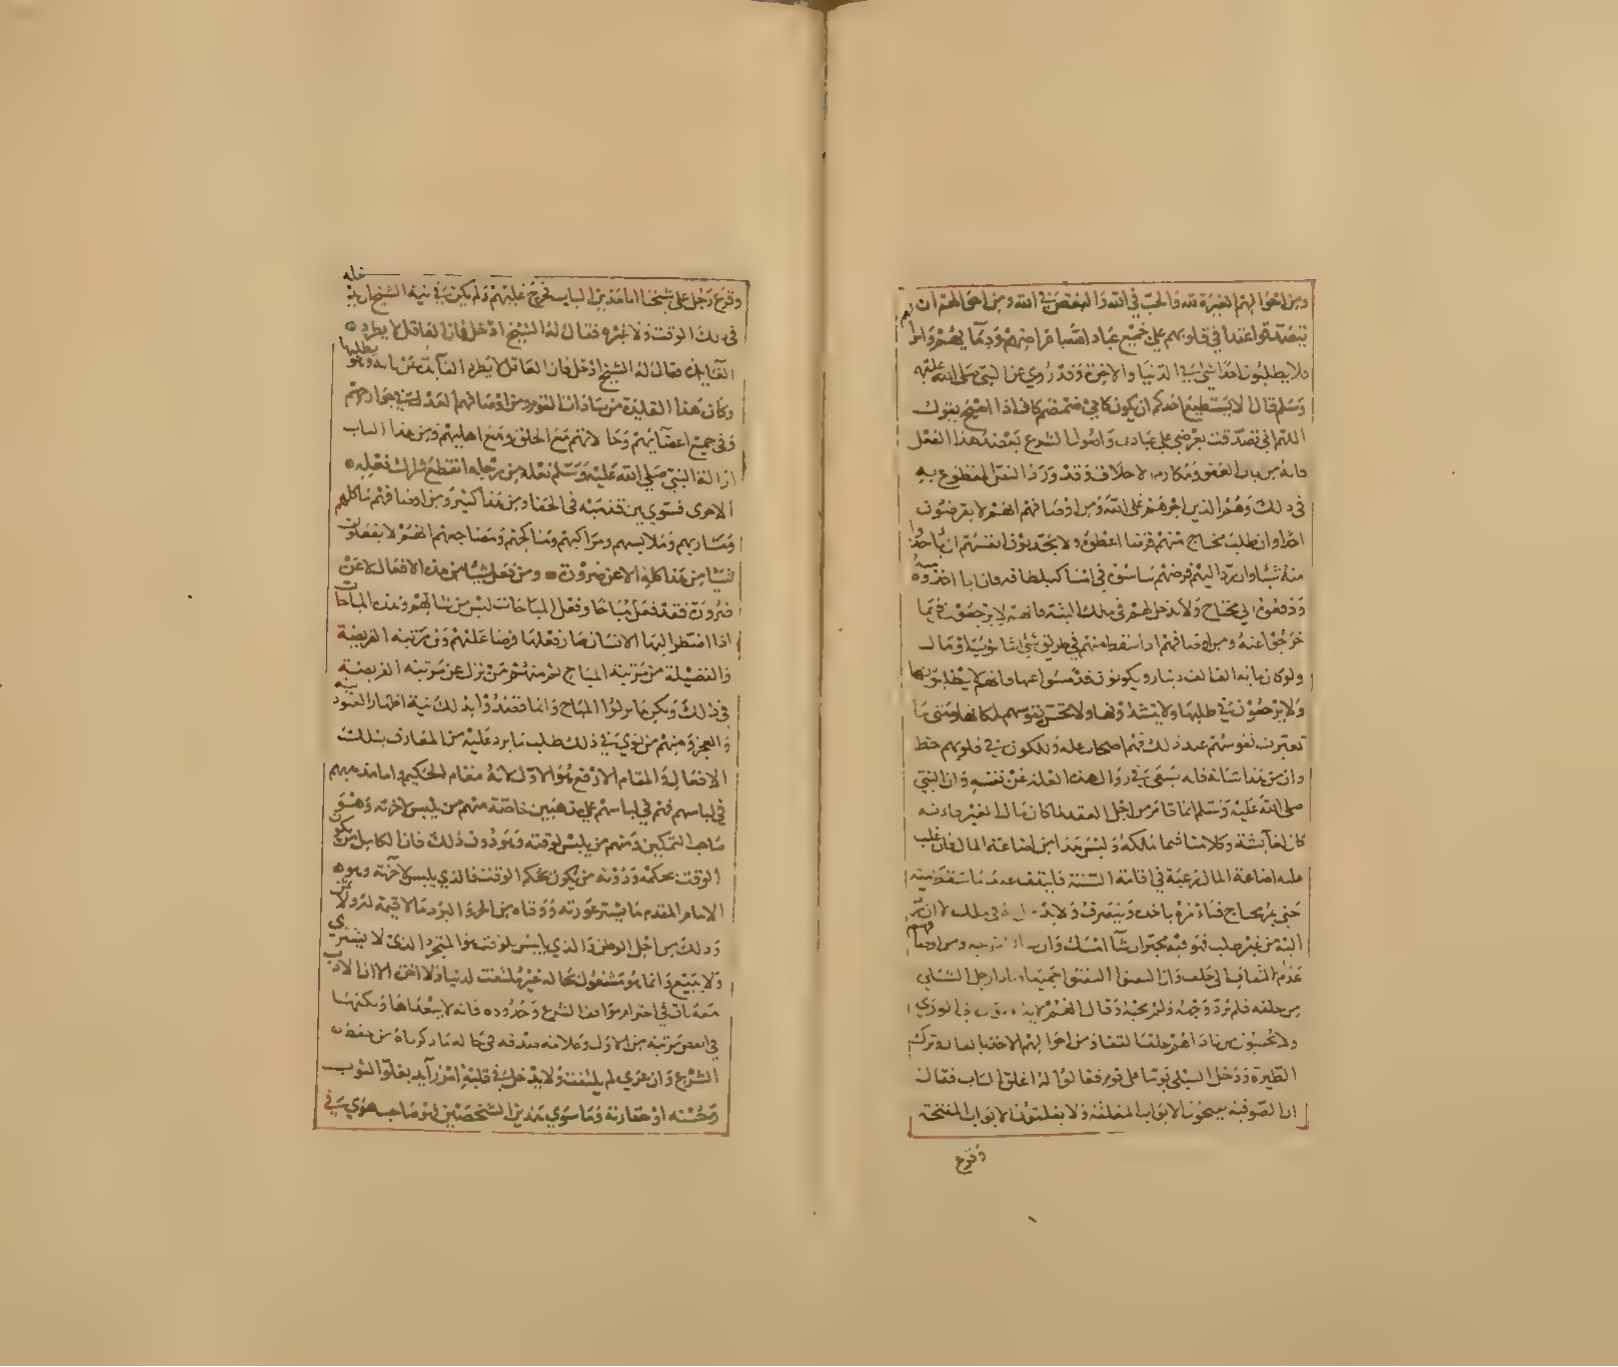 ومن احوالهم الغيرة لله والحب في الله والبغض في الله ومن احوالهم ان
يتصدقوا اعتدا في قلوبهم على جميع عباد الله باعراضهم ودمايهم واموالهم
فلا يطلبون احدا بشي في الدنيا والاخرة وقد روي عن النبي صلى الله عليه
وسلم قال لا يستطيع احدكم ان يكون كابي ضمضم كان اذا اصبح يقول
اللهم اني تصدقت بعرضي على عبادك واصول الشرع بعضد هذا الفعل
فانه من باب العفو ومكارم الاخلاق وقد ورد النص المقطوع به
في ذلك وهم الذين اجرهم على الله ومن اوصافهم انهم لا يقرضون
احدا وان طلب محتاج منهم قرضا اعطوه ولا يحدثون انفسهم ان ياخذوا
منه شيا وان رد اليهم قرضهم ساسوه في امساكه بلطافة فان ابا اخذوه
ودفعوه الى محتاج ولا يدخل لهم في ملك البتة فانهم لا يرجعون فيما
خرجوا عنه ومن اوصافهم اذا سقط منهم في طريق شي اما ثوب او مال
ولو كان ماية الف دينار ويكونون قد مشوا عنها فانهم لا يطلبونها
ولا يرجعون في طلبها ولا ينشدونها ولا تحسن نفوسهم لمكانها ومتى ما
تغيرت نفوسهم عند ذلك فهم اصحاب علة وللكون في قلوبهم حظ
وان من هذا شانه فله يسعى في زوال هذه العلة عن نفسه وان النبي
صلى الله عليه وسلم انما قام من اجل العقد لما كان مالا لغيره فانه
كان لعايشة وكلامنا فيما نملكه وليس هذا من اضاعة المال فان غلب
عليه اضاعة المال رغبة في اقامة السنة فليقف عند ما سقط منه
حتى يمر محتاج فيامره باخذه وينصرف ولا يدخله في ملك لا ان
البتة من غير طلب فهو فيه مخير ان شا امسك وان ومن اوصافهم
عدم التفاف الى خلف وان التفتوا التفتوا جميعا نادى رجل الشبلي
من خلفه فلم يرد وجهه ولم يجبه وقال انهم لا
ولا يجيبون من ناداهم خلفا التفاذ من احوالهم الاخذ بالفال وترك
الطيرة ودخل الشبلي يوما على قوم فقالوا له اغلق الباب فقال
ان الصوفية يفتحون الابواب المغلقة ولا يغلقون الابواب المفتحة
وقرع
وقرع رجل على شيخنا ابا مدين الباب فخرج عليهم ولم يكن في نية الشيخ ان يدخله
في ذلك الوقت ولا غيره فقال له الشيخ ادخل فان العاقل لا يطرد
الفايدة فقال له الشيخ ادخل فان العاقل لا يطرد الفايدة عن بابه وهو يطلبها
وكان هذا القليذ من سادات القوم ومن اوصافهم العدل في جوارحهم
وفي جميع اعضايهم وحالاتهم مع الخلق ومع اهليهم ومن هذا الباب
ازالة النبي صلى الله عليه وسلم نعله من رجله انقطع شراك نعله
الاخرى فسوي بين قدميه في الحفا ومن هذا كثير ومن اوصافهم في ماكلهم
ومشاربهم وملابسهم ومراكبهم ومناكحهم ومضاجعهم انهم لا يفعلون
شيا من هذا كله الا عن ضرورة ومن فعل شيا من هذه الافعال لا عن
ضرورة فقد فعل مباحا وفعل المباحات ليس من شانهم وهذه المباحات
اذا اضطر اليها الانسان صار فعلها فرضا عليهم ومن مرتبة الفريضة
والفضيلة من مرتبة المباح ثم منهم من نزل عن مرتبة الفريضة
في ذلك ويكرهما نزلوا المباح وانما قصدوا بذلك نية اظهار العبودية
والعجز ومنهم من نوي في ذلك طلب ما يرد عليه من المعارف بتلك
الافعال والمقام الارفع هو الاول لانه مقام الحكيم واما مذهبهم
في لباسهم فهم في لباسهم على مذهبين خاصة منهم من يلبس لاخرته وهو
صاحب التمكين ومنهم من يلبس لوقته وهو دون ذلك فان الكامل من يكون
الوقت بحكمه ودونه من يكون بحكم الوقت فالذي يلبس لاخرته وهو
الامام المقدم ما يستر عورته ووقاه من الحر والبرد مما لا قيمة له ولا ثمن
وذلك من اجل الوطن والذي يلبس لوقته هو المتجرد الذي لا يشتري
ولا يبيع وانما هو مشغول بحاله غير ملتفت لدنيا ولا اخرى الا ان الادب
معه باق في احترام مواقف الشرع وحدوده فانه لا يتعداها ولكنها
في انقص مرتبة من الاول وعلامة صدقه في حاله ما ذكرناه من حفظ
الشرع وان عري لم يلتفت ولا يدخل في قلبه امر زايد بعلو الثوب
وحسنه او حقارته وما سوي هذين الشخصين فهو صاحب هوي في